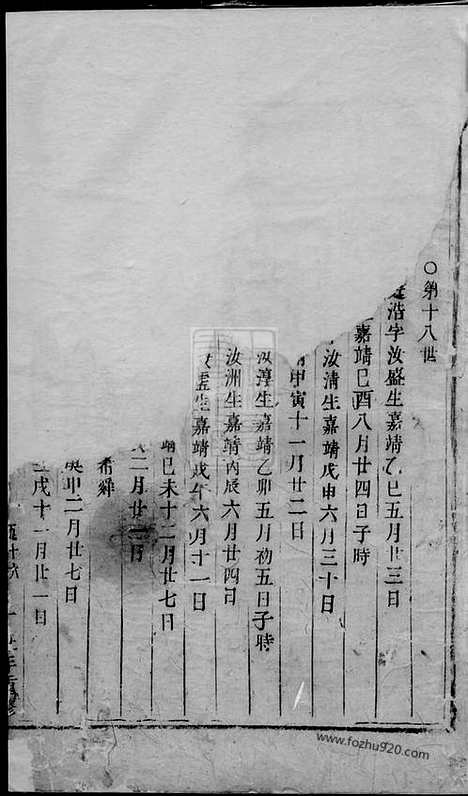 ○第十八世
浩字汝盛生嘉靖乙巳五月廿三日
嘉靖己酉八月廿四日子時
汝清生嘉靖戊申六月三十日
甲寅十一月廿二日
汝淳生嘉靖乙卯五月初五日子時
汝洲生嘉靖丙辰六月廿四日
生嘉靖戊午六月十一日
靖己未十二月廿七日
二月廿一日
希舜
庚申二月廿七日
戌十一月廿一日
www.fozhu920.com